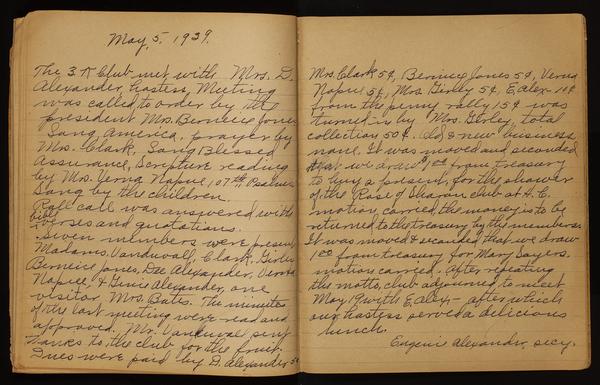 May, 5, 1939.
The 3.K Club met with Mrs. D.
Alexander, hostess, Meeting
was called to order by the
president Mrs. Berneice Jones
Song, America, prayer by
Mrs. Clark, Song Blessed
Assurance, Scripture reading
by Mrs. Verna Napue, 107th, Psalms
Song by the children.
Roll call was answered with
bible
verses and quotations.
Seven members were present,
Madams, Vanduvall, Clark, Girley
Berneice Jones, Dee Alexander, Verna
Napuee, & Genie Alexander, one
visitor, Mrs. Bates. The minutes
of the last meeting were read and
approved. Mr. Vanduval sent
thanks to the club for the fruit.
Dues were paid by D. Alexander 5¢
Mrs. Clark 5¢, Berneice Jones 5¢, Verna
Napue 5¢, Mrs. Girley 5¢, E. Alex. 10¢
from the penny rally 15¢ was
turned in by Mrs. Girley, total
collection 50¢. Old & new business
none. It was moved and seconded
that we draw $1.00 from treasury
to buy a present, for the shower
of the Rose of Sharon club at A. C.
motion, carried, the money is to be
returned to the treasury by the members.
It was moved & seconded that we draw
1.00 from treasury for Mary Sayers.
motion carried. After repeating
the motto, club adjourned to meet
May 19 with E. Alex - after which
our hostess served a delicious
lunch.
Eugenie Alexander, secy.